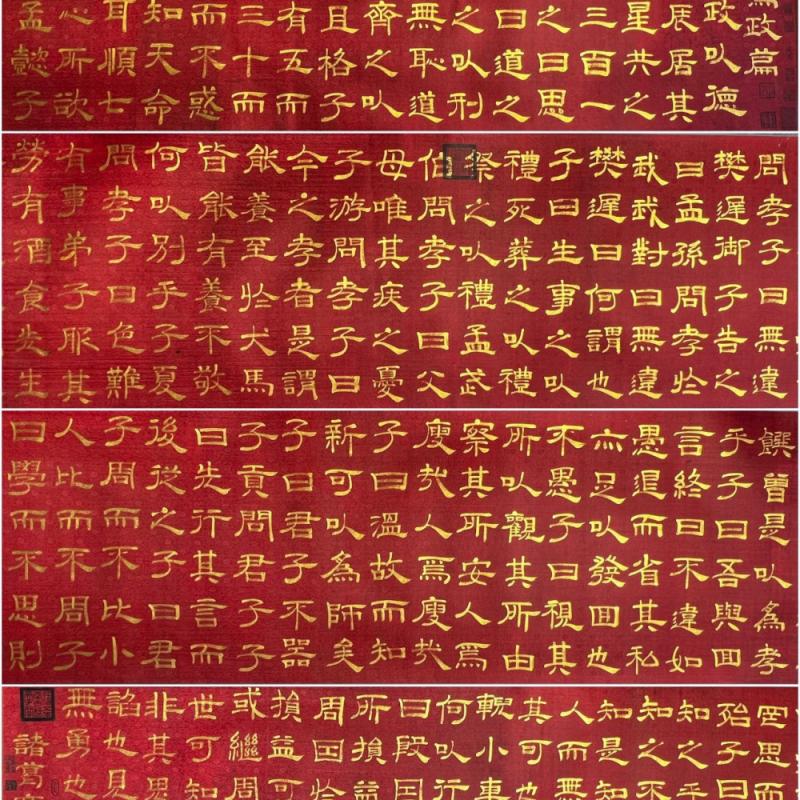 為政篇
政以德
辰居其
星共之
三百一
之曰思
曰道之
之以刑
無恥道
齊之以
且格子
有五而
三十而
而不惑
知天命
耳順七
心所欲
孟懿子
問孝子曰無違
樊遲御子告之
曰孟孫問孝於
我我對曰無違
樊遲曰何謂也
子曰生事之以
禮死葬之以禮
祭之以禮孟武
伯問孝子曰父
母唯其疾之憂
子游問孝子曰
今之孝者是謂
能養至於犬馬
皆能有養不敬
何以別乎子夏
問孝子曰色難
有事弟子服其
勞有酒食先生
饌曾是以為孝
乎子曰吾與回
言終日不違如
愚退而省其私
亦足以發回也
不愚子曰視其
所以觀其所由
察其所安人焉
廋哉人焉廋哉
子曰溫故而知
新可以為師矣
子曰君子不器
子貢問君子子
曰先行其言而
後從之子曰君
子周而不比小
人比而不周子
曰學而不思則
罔思而
殆子曰
知之乎
知之不
知是知
人而無
其可也
輗小車
何以行
曰殷因
所損益
周因於
損益可
或繼周
世可知
非其鬼
諂也見
無勇也
諸葛